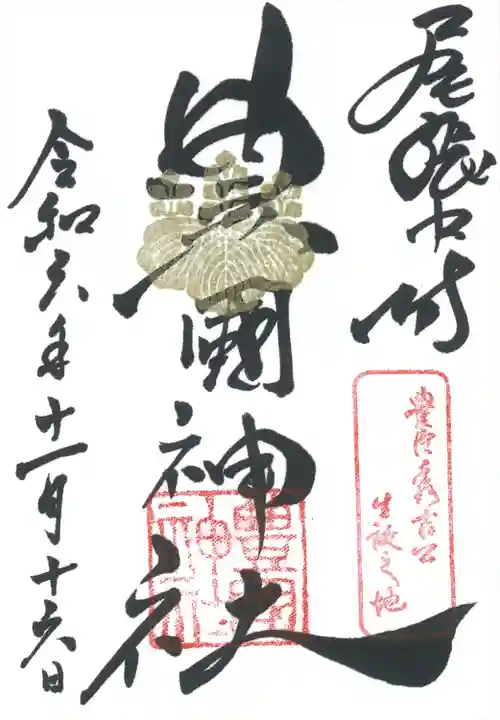 尾張中村
豊臣秀吉公
生誕之地
豊國神社
豊國
神社
令和六年十一月十六日